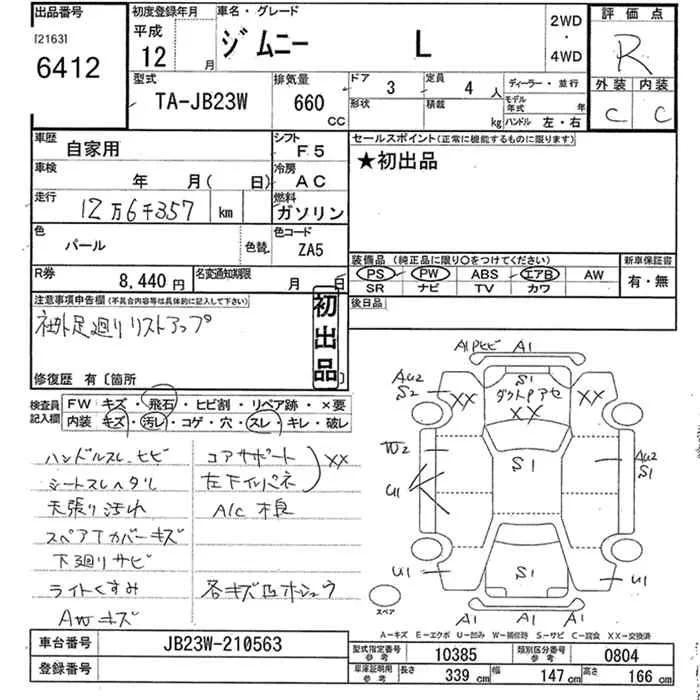 出品番号
[2163]
6412
初度登録年月
平成
12 月
車名・グレード
ジムニー L
2WD
・
4WD
評価点
R
外装 内装
C C
型式
TA-JB23W
排気量
660
CC
ドア 3
定員 4 人
ディーラー・並行
形状
積載 kg
モデル年式 年
ハンドル 左・右
車歴
自家用
シフト
F5
車検
年 月( 日)
冷房
AC
走行
12万6千357 km
燃料
ガソリン
色
パール
色替
色コード
ZA5
R券
8,440円
名変通知期限
月 日
セールスポイント(正常に機能するものに限ります)
★初出品
装備品(純正品に限り○をつけてください)
PS PW ABS エアB AW
SR ナビ TV カワ
新車保証書
有・無
後日品
注意事項申告欄(不具合内容等は具体的に記入して下さい)
社外足廻り リストアップ
初出品
修復歴 有〔箇所
検査員記入欄
FW キズ・飛石・ヒビ割・リペア跡・×要
内装 キズ・汚レ・コゲ・穴・スレ・キレ・破レ
ハンドルスレ、ヒビ
シートスレヘタレ
天張り汚れ
スペアTカバーキズ
下廻りサビ
ライトくすみ
AWキズ
コアサポート
左右インパネ
XX
A/C不良
各キズ凹ホシュウ
A1Pヒビ A1
AU2
S2
XX
S1
ダクトPアセ
XX
XX
W2
S1
AU2
S1
U1
U1
S1
U1
A1 A1 A1
スペア
A-キズ E-エクボ U-凹み W-補修跡 S-サビ C-腐食 XX-交換済
車台番号
JB23W-210563
登録番号
型式指定番号
参考
10385
類別区分番号
参考
0804
車庫証明用
参考
長さ 339 cm
幅 147 cm
高さ 166 cm